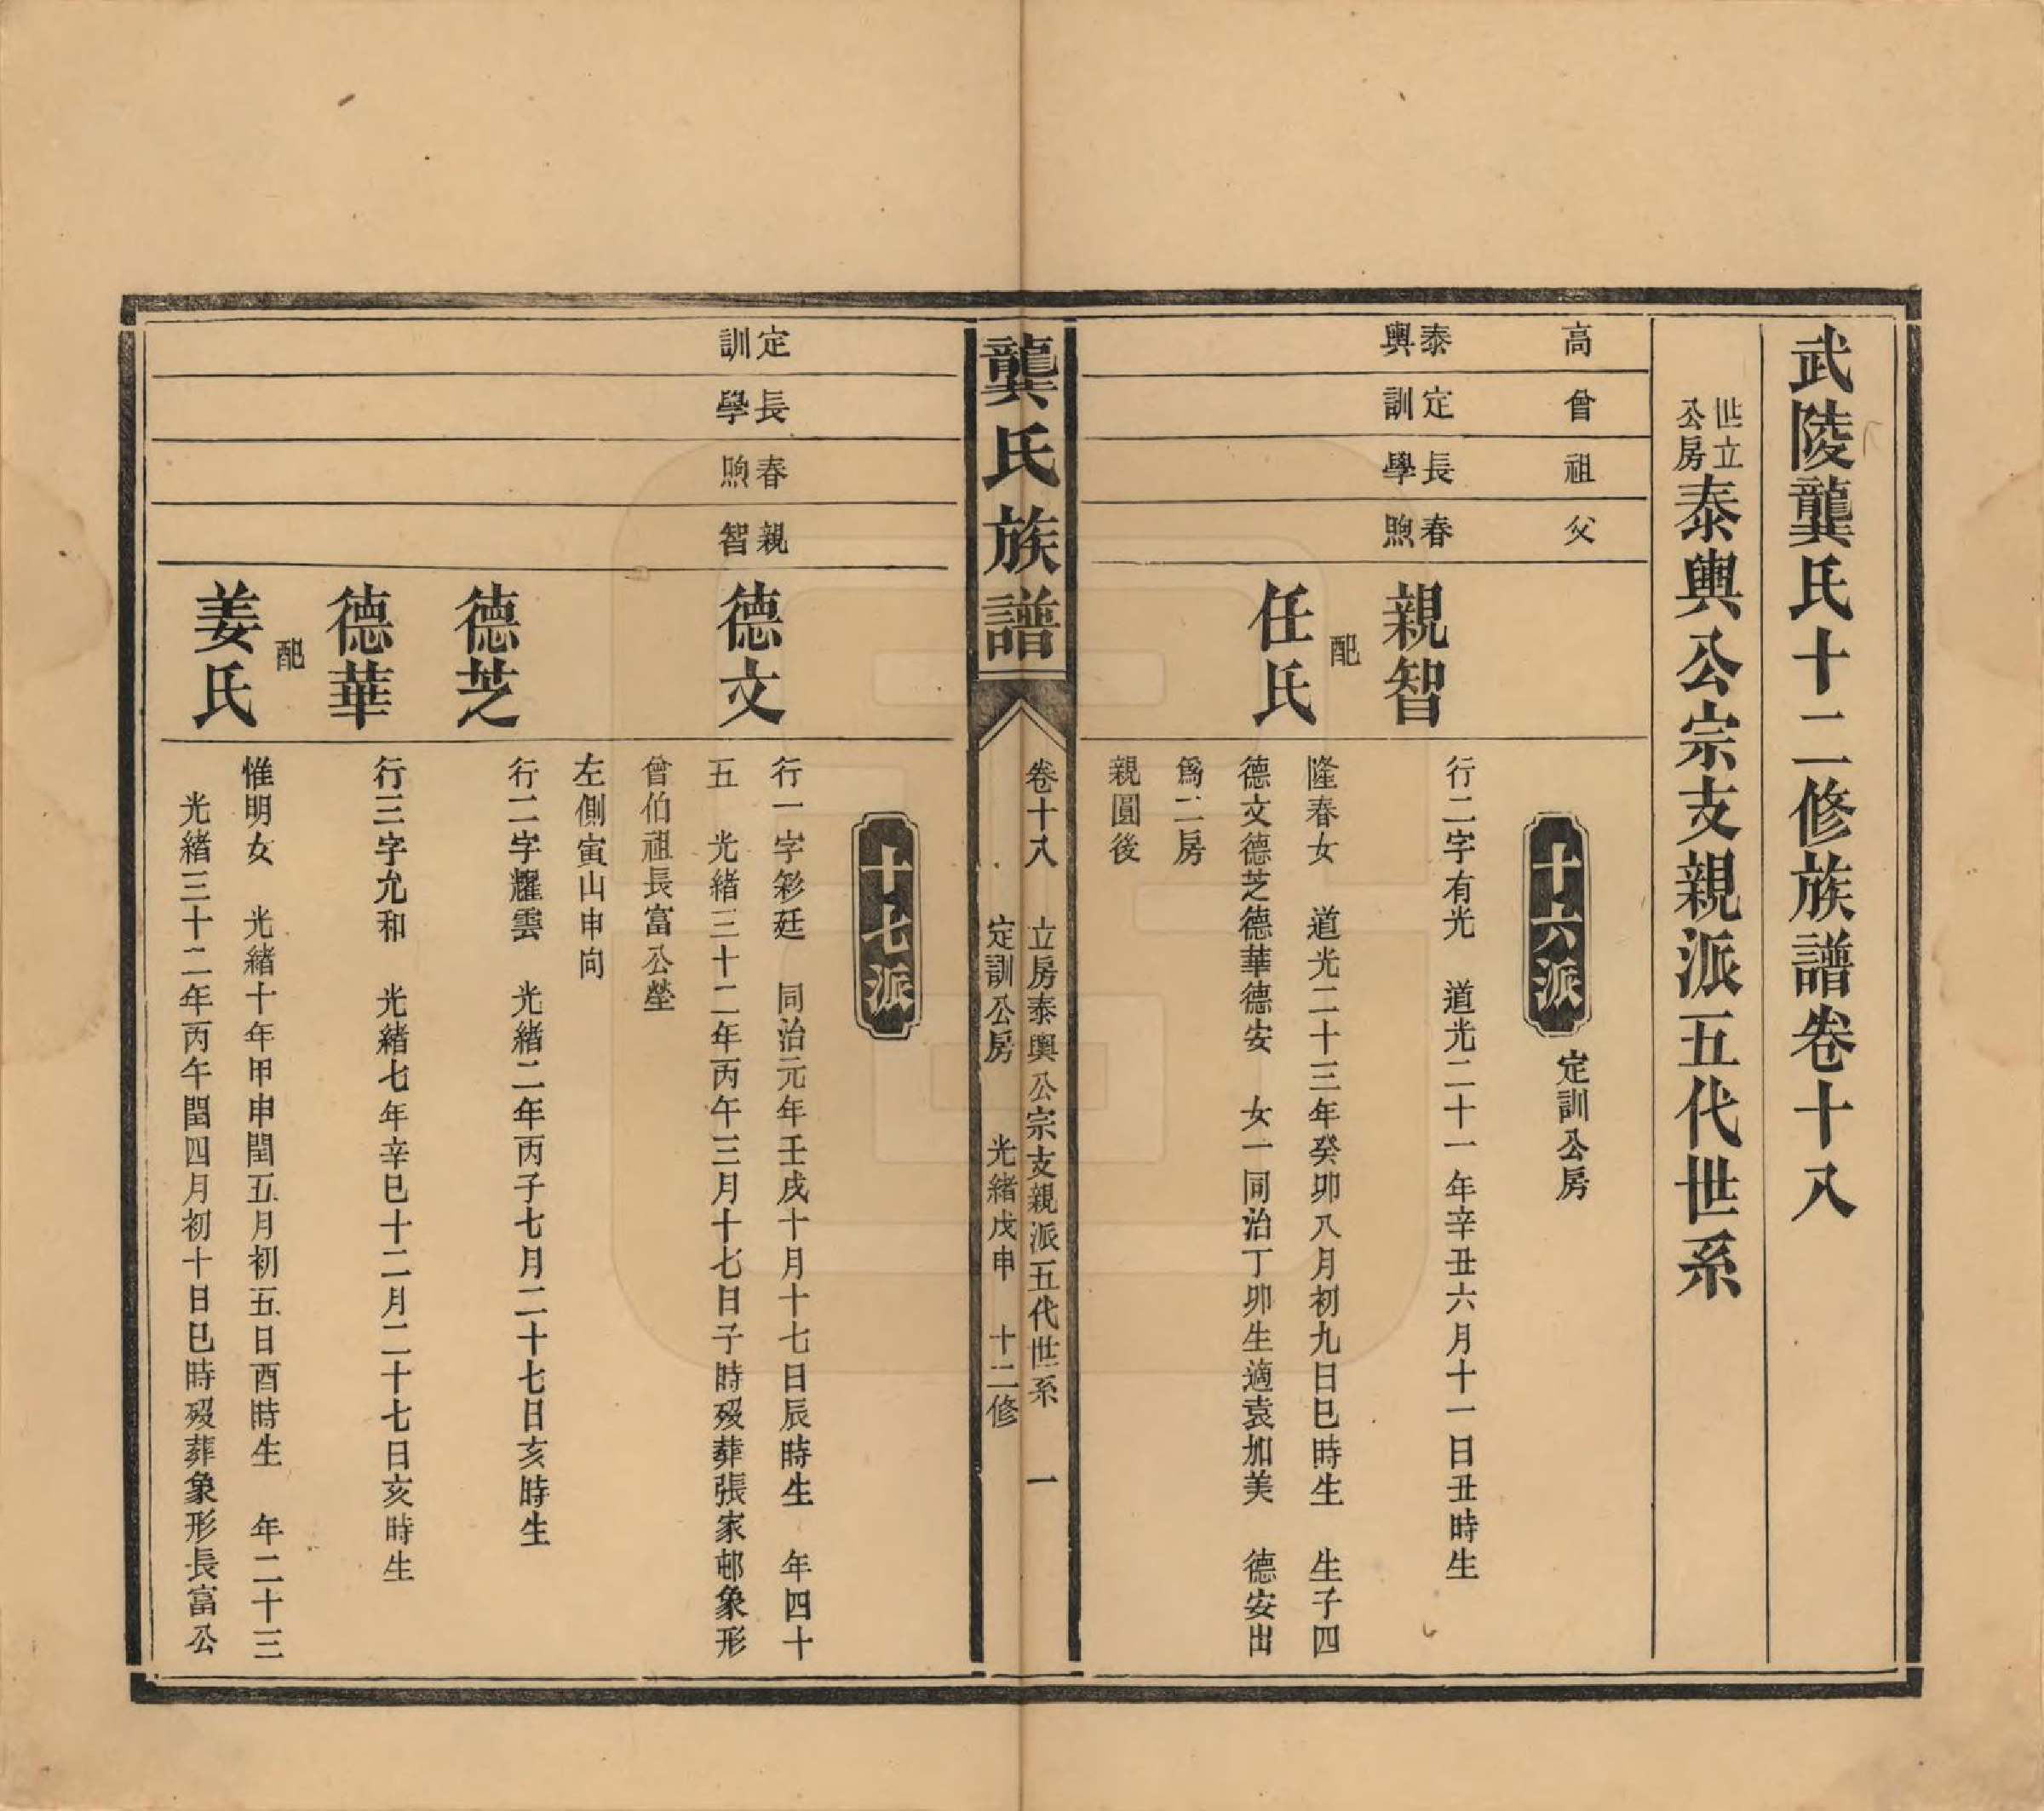 武陵龔氏十二修族譜卷十八
世立
公房
泰輿公宗支親派五代世系
高
曾
祖
父
十六派
定訓公房
泰輿
定訓
長學
春煦
親智
行二字有光　道光二十一年辛丑六月十一日丑時生
配
任氏
隆春女　道光二十三年癸卯八月初九日巳時生　生子四
德文德芝德華德安　女一同治丁卯生適袁加美　德安出
爲二房
親圓後
龔氏族譜
卷十八　立房泰輿公宗支親派五代世系　一
定訓公房　光緒戊申　十二修
十七派
定訓
長學
春煦
親智
德文
行一字彩廷　同治元年壬戌十月十七日辰時生　年四十
五　光緒三十二年丙午三月十七日子時歿葬張家邨象形
曾伯祖長富公塋
左側寅山申向
德芝
行二字耀雲　光緒二年丙子七月二十七日亥時生
德華
行三字允和　光緒七年辛巳十二月二十七日亥時生
配
姜氏
惟明女　光緒十年甲申閏五月初五日酉時生　年二十三
光緒三十二年丙午閏四月初十日巳時歿葬象形長富公